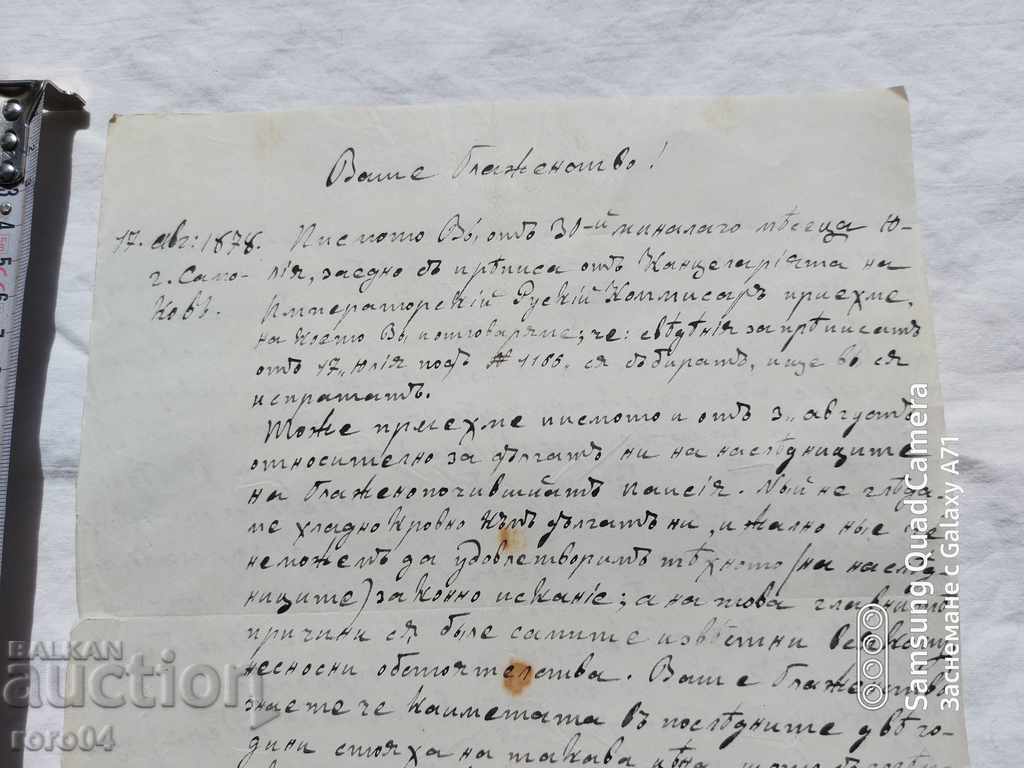 Ваше Блаженство!
17. авг: 1878.
г. Само-
ковъ.
Писмото Ви, отъ 30-й миналаго мѣсеца Ю-
лія, заедно съ прѣписа отъ Канцеларіята на
Императорскій Рускій Коммисаръ приехме,
на което Ви отговаряме; че: свѣдѣнія за прѣписатъ
отъ 17„ Юлія подъ № 1185, ся събиратъ, и ще ви ся
испратятъ.
Тоже приехме писмото и отъ 3„ августъ
относително за дългатъ ни на наслѣдниците
на блаженопочившійатъ Паисія. Ный не глѣда-
ме хладнокръвно към дългатъ ни, и жално ные че
неможемъ да удовлетворимъ тѣхното (на наслѣд-
ниците) законно исканіе; а на това главните
причини ся быле самите извѣстни
несносни обстоятелства. Ваше Блаженство
знаете че каиметата въ послѣдните двѣ го-
дини стояха на такава цѣна,
BALKAN
auction
roro04
Samsung Quad Camera
Заснемане с Galaxy A71